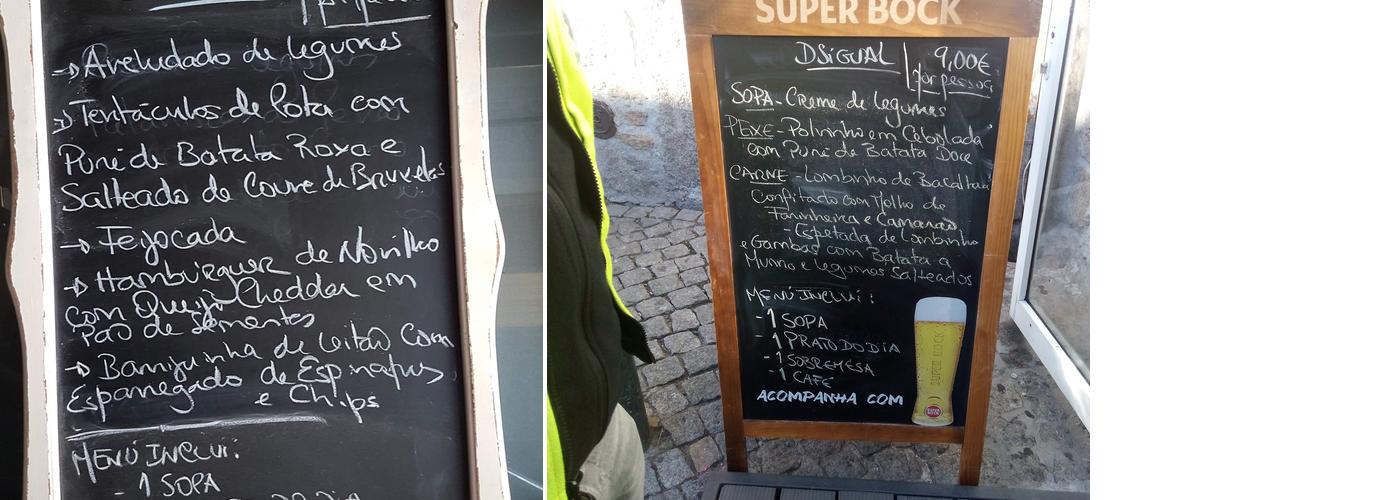 Aveludado de legumes
Tentáculos de Pota com
Puré de Batata Roxa e
Salteado de Couve de Bruxelas
Feijocada
Hambúrguer de Novilho
com Queijo Cheddar em
Pão de sementes
Barriguinha de leitão com
Esparregado de Espinafres
e Chips
MENÚ INCLUI:
- 1 SOPA
SUPER BOCK
DSIGUAL 9,00€
por pessoa
SOPA - Creme de legumes
PEIXE - Polvinho em Cebolada
com Puré de Batata Doce
CARNE - Lombinho de Bacalhau
Confitado com Molho de
Farinheira e Camarão
- Espetada de Lombinho
e Gambas com Batata a
Murro e legumes Salteados
MENÚ INCLUI:
- 1 SOPA
- 1 PRATO DO DIA
- 1 SOBREMESA
- 1 CAFÉ
ACOMPANHA COM
SUPER BOCK
SUPER BOCK